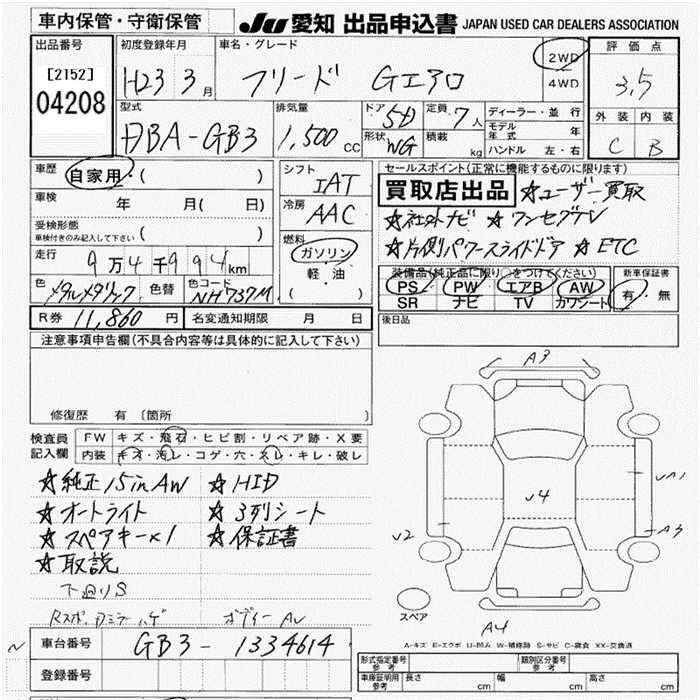 車内保管・守衛保管 JU 愛知 出品申込書 JAPAN USED CAR DEALERS ASSOCIATION
出品番号 初度登録年月 車名・グレード 2WD 評価点
[2152] H23 3月 フリード Gエアロ 4WD 3,5
04208 型式 排気量 ドア 5D 定員 7人 ディーラー・並行 外装 内装
DBA-GB3 1,500cc 形状 WG 積載 kg モデル年式 年 C B
ハンドル 左・右
車歴 自家用・( ) シフト IAT セールスポイント(正常に機能するものに限ります)
車検 年 月( 日) 冷房 AAC 買取店出品 ☆ユーザー買取
受検形態 ☆社外ナビ ☆ワンセグTV
車検付きのみ記入して下さい ( ) 燃料 ☆片側パワースライドドア ☆ETC
走行 9万4千994km ガソリン 装備品(純正品に限り○をつけてください) 新車保証書
軽・油 PS PW エアB AW 有・無
色 メタルメタリック 色替 色コード NH737M ( ) SR ナビ TV カワシート
R券 11,860円 名変通知期限 月 日 後日品
注意事項申告欄(不具合内容等は具体的に記入して下さい)
A3
修復歴 有 (箇所
検査員 FW キズ・飛石・ヒビ割・リペア跡・X要
記入欄 内装 キオ・汚レ・コゲ・穴・スレ・キレ・破レ
☆純正15inAW ☆HID UA1
☆オートライト ☆3列シート v4
☆スペアキー×1 ☆保証書 v2 A3
☆取説
下廻りS
ボディーAU スペア
A4
車台番号 GB3-1334614 A-キズ E-エクボ U-凹み W-補修跡 S-サビ C-腐食 XX-交換済
登録番号 形式指定番号 参考 類別区分番号 参考
車庫証明用 参考 長さ cm 幅 cm 高さ cm